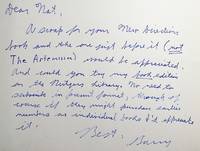 Dear Nat,
A scrap for your New Directions
book and the one just before it (not
The Artemisia) would be appreciated.
And could you try my book
on the Rutgers library. No need to
submit in format, though of
course if they might purchase earlier
numbers as individual books I'd appreciate
it.
Best,
Barry